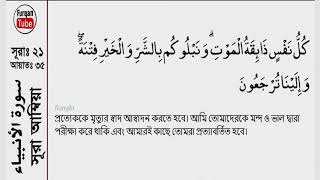 Furqan
Tube
সূরাঃ ২১
আয়াতঃ ৩৫
سورة الأنبياء
সূরা আম্বিয়া
كُلُّ نَفْسٍ ذَائِقَةُ الْمَوْتِ ۗ وَنَبْلُوكُم بِالشَّرِّ وَالْخَيْرِ فِتْنَةً ۖ
وَإِلَيْنَا تُرْجَعُونَ
Bangla
প্রত্যেককে মৃত্যুর স্বাদ আস্বাদন করতে হবে। আমি তোমাদেরকে মন্দ ও ভাল দ্বারা
পরীক্ষা করে থাকি এবং আমারই কাছে তোমরা প্রত্যাবর্তিত হবে।